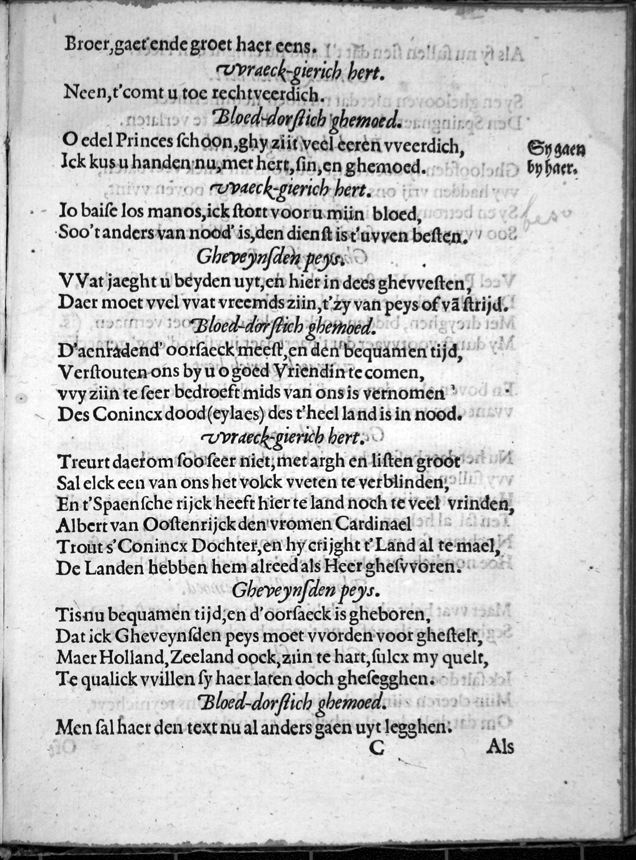 Broer,gaet ende groet haer eens.
vvraeck-gierich hert.
Neen,t'comt u toe rechtveerdich.
Bloed-dorstich ghemoed.
O edel Princes schoon,ghy ziit veel eeren vveerdich,
Ick kus u handen nu,met hert,sin,en ghemoed.
Sy gaen
by haer.
vvaeck-gierich hert.
Io baise los manos,ick stort voor u miin bloed,
Soo't anders van nood' is,den dienst is t'uvven besten.
Gheveynsden peys.
VVat jaeght u beyden uyt,en hier in dees ghevvesten,
Daer moet vvel vvat vreemds ziin,t'zy van peys of vā strijd.
Bloed-dorstich ghemoed.
D'aenradend' oorsaeck meest,en den bequamen tijd,
Verstouten ons by u o goed Vriendin te comen,
vvy ziin te seer bedroeft mids van ons is vernomen
Des Conincx dood(eylaes) des t'heel land is in nood.
vvraeck-gierich hert.
Treurt daerom soo seer niet,met argh en listen groot
Sal elck een van ons het volck vveten te verblinden,
En t'Spaensche rijck heeft hier te land noch te veel vrinden,
Albert van Oostenrijck den vromen Cardinael
Trout s'Conincx Dochter,en hy crijght t'Land al te mael,
De Landen hebben hem alreed als Heer ghesvvoren.
Gheveynsden peys.
Tis nu bequamen tijd,en d'oorsaeck is gheboren,
Dat ick Gheveynsden peys moet vvorden voor ghestelt,
Maer Holland,Zeeland oock,ziin te hart,sulcx my quelt,
Te qualick vvillen sy haer laten doch ghesegghen.
Bloed-dorstich ghemoed.
Men sal haer den text nu al anders gaen uyt legghen.
C Als